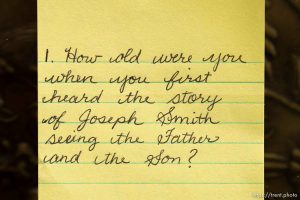 1. How old were you
when you first
heard the story
of Joseph Smith
seeing the Father
and the Son?
http://trent.photo